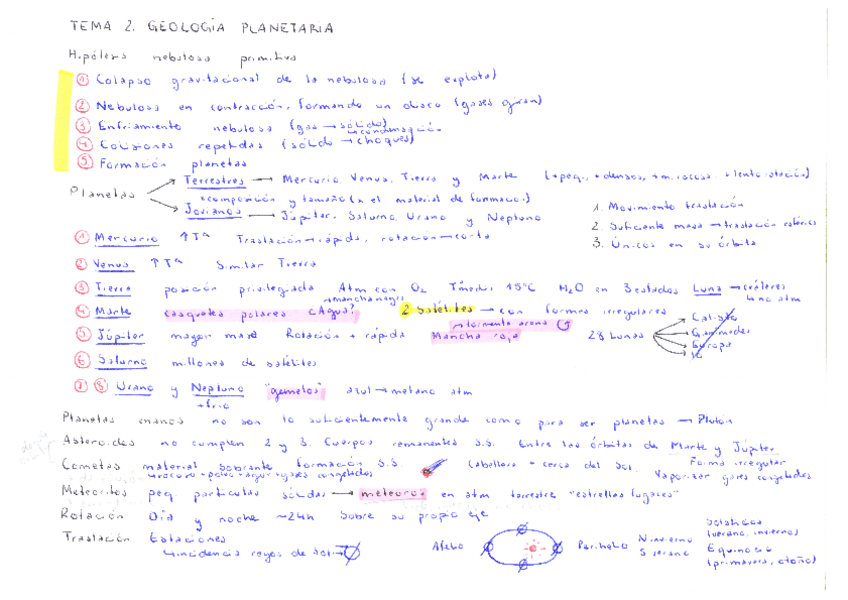 TEMA 2. GEOLOGÍA PLANETARIA
Hipótesis nebulosa primitiva
① Colapso gravitacional de la nebulosa (se explota)
② Nebulosa en contracción, formando un disco (gases giran)
③ Enfriamiento nebulosa (gas → sólido)
↳ condensación
④ Colisiones repetidas (sólido → choques)
⑤ Formación planetas
Planetas
Terrestres → Mercurio, Venus, Tierra y Marte (+peq, +densos, +m, rocosa, +lenta rotación)
≠ composición y tamaño (x el material de formación)
Jovianos → Júpiter, Saturno, Urano y Neptuno
1. Movimiento traslación
2. Suficiente masa → traslación esférica
3. Únicos en su órbita
① Mercurio ↑Tª Traslación → rápida, rotación → corta
② Venus ↑Tª Similar Tierra
③ Tierra posición privilegiada Atm con O2 Tmedia: 15ºC H2O en 3 estados Luna → cráteres
↳ no atm
→ mancha negra
④ Marte casquetes polares ¿Agua? 2 satélites → con formas irregulares
→ tormenta arena
⑤ Júpiter mayor masa Rotación + rápida Mancha roja 28 Lunas
Calisto
Ganímedes
Europa
Io
⑥ Saturno millones de satélites
⑦ ⑧ Urano y Neptuno "gemelos" azul → metano atm
+frío
Planetas enanos no son lo suficientemente grande como para ser planetas → Plutón
Asteroides no cumplen 2 y 3. Cuerpos remanentes S.S. Entre las órbitas de Marte y Júpiter
Forma irregular
Cometas material sobrante formación S.S Cabellera + cerca del Sol.
Vaporizar gases congelados
Meteoritos peq. partículas sólidas → meteoros en atm terrestre "estrellas fugaces"
Rotación Día y noche ~24h Sobre su propio eje
Traslación Estaciones
↳ incidencia rayos de Sol →
Afelio
Perihelio
N invierno
S verano
Solsticios
(verano, invierno)
Equinoccio
(primavera, otoño)